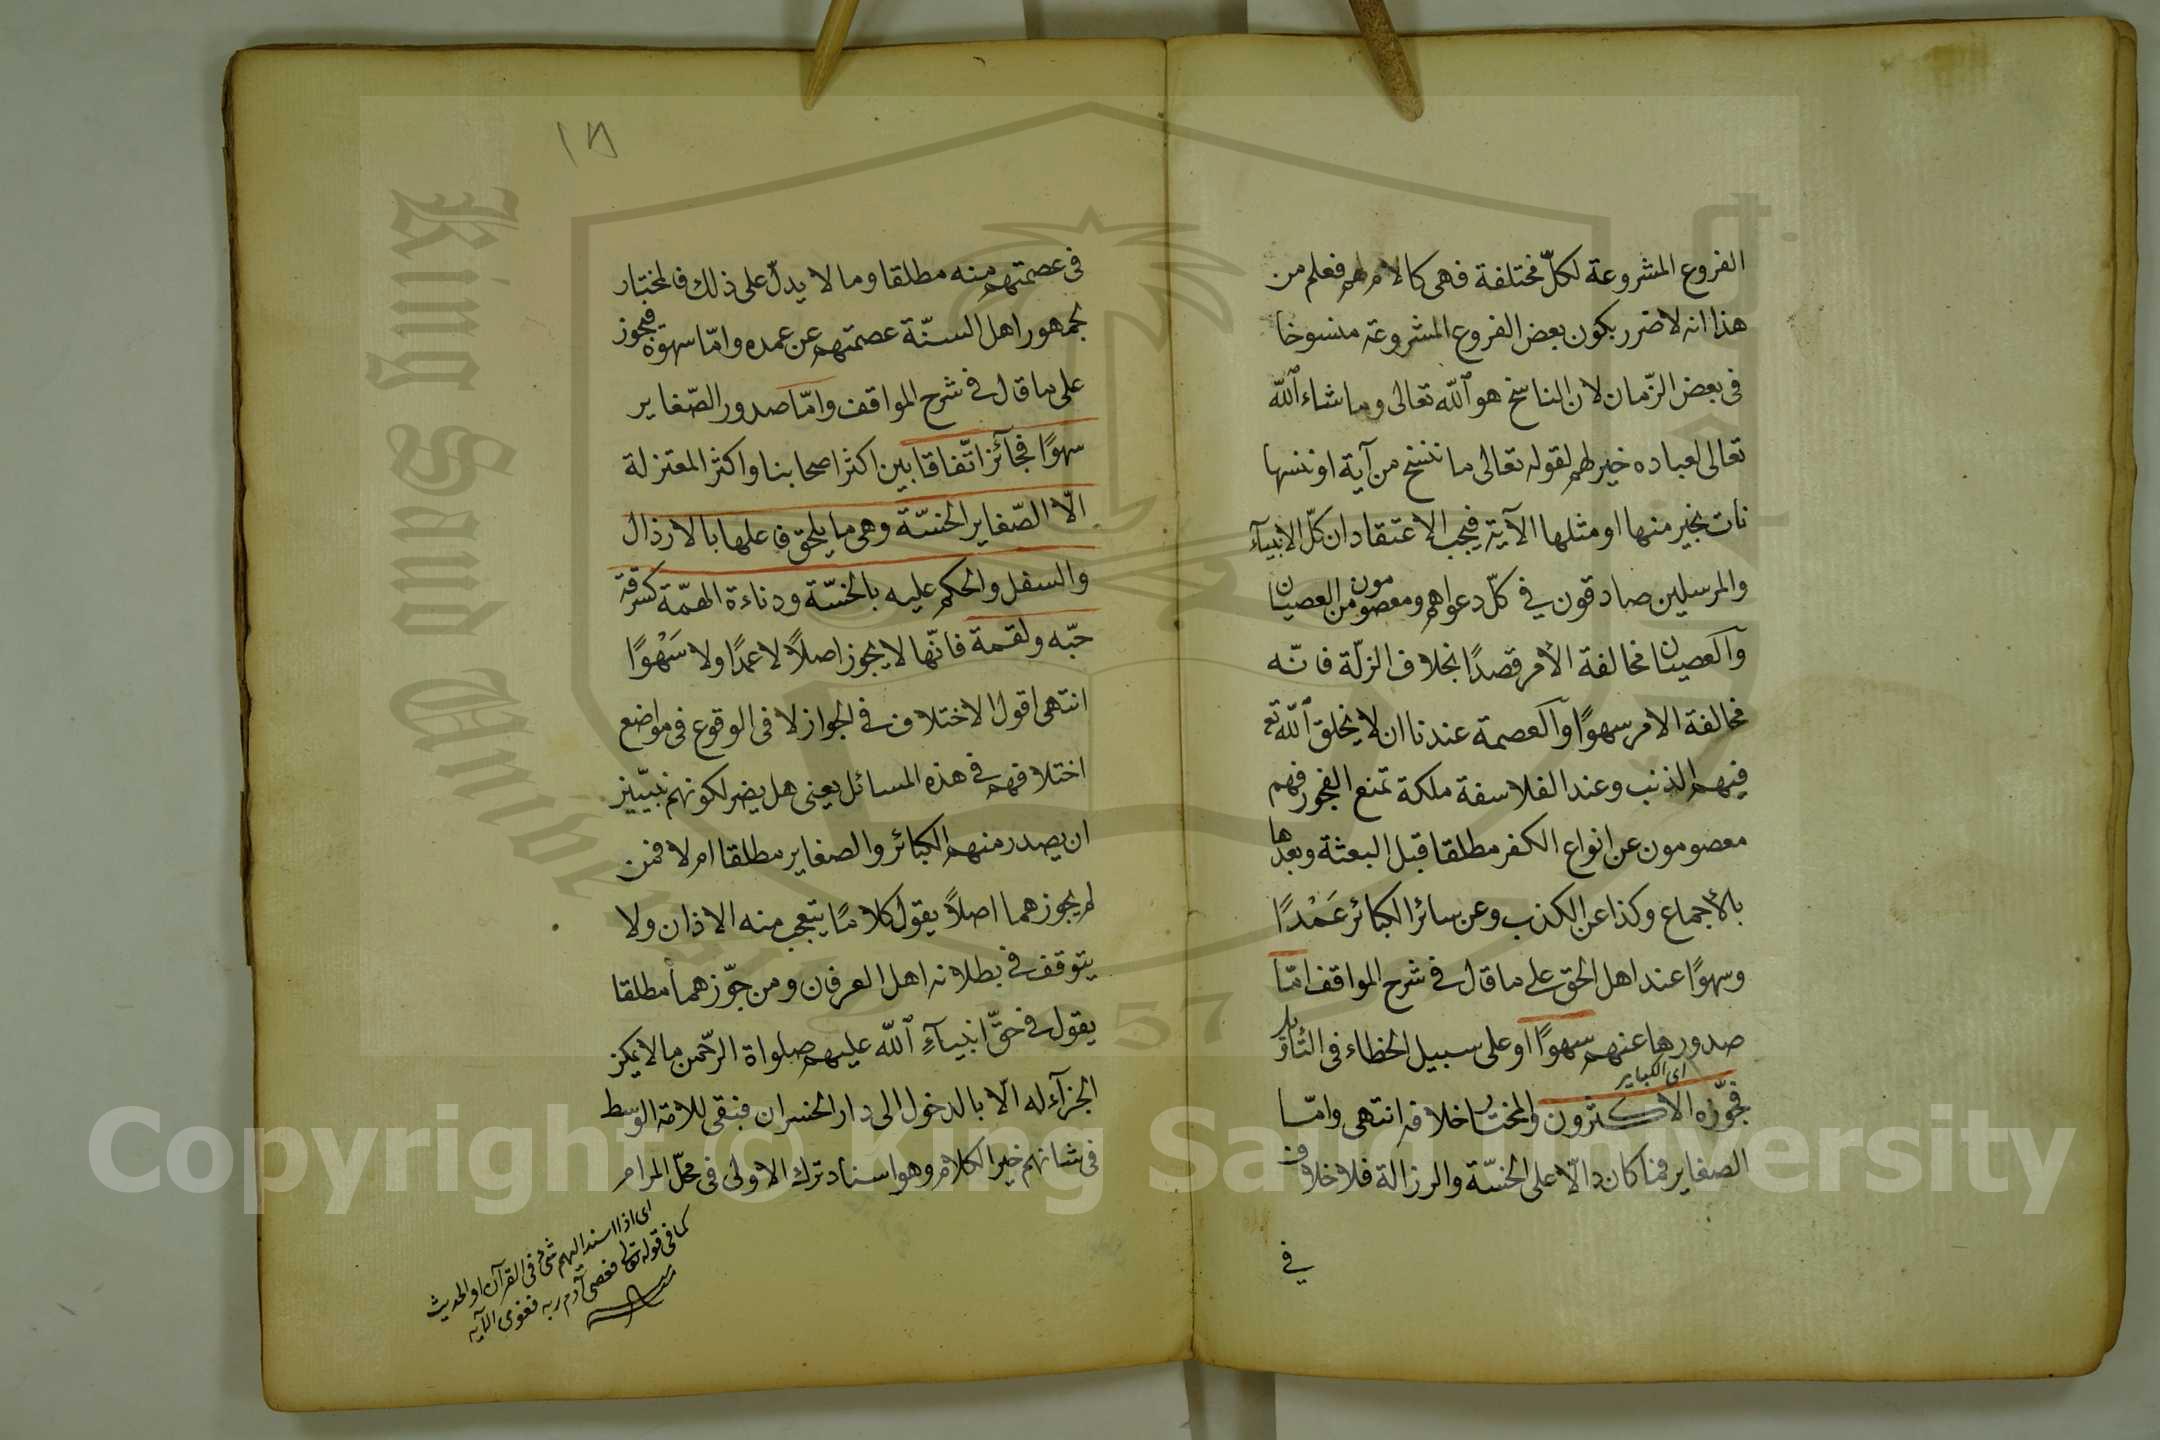 الفروع المشروعة لكلّ مختلفة فهى كالامر لهم فعلم من
هذا انه لا ضرر بكون بعض الفروع المشروعة منسوخا
فى بعض الزّمان لان الناسخ هو الله تعالى وما شاء الله
تعالى لعباده خير لهم لقوله تعالى ما ننسخ من آية او ننسها
نات بخير منها او مثلها الآية فيجب الاعتقاد ان كلّ الانبيآء
والمرسلين صادقون فى كلّ دعواهم ومعصومون من العصيان
وآلعصيان مخالفة الأمر قصدًا بخلاف الزلّة فانّه
مخالفة الامر سهوًا وآلعصمة عندنا ان لا يخلق الله تع
فيهم الذنب وعند الفلاسفة ملكة تمنع الفجور فهم
معصومون عن انواع الكفر مطلقا قبل البعثة وبعدها
بالأجماع وكذا عن الكذب وعن سائر الكبائر عَمْدًا
وسهوًا عند اهل الحق على ما قال فى شرح المواقف امّا
صدورها عنهم سهوًا او على سبيل الخطاء فى التأويل
اى الكباير
فجوّزه الاكثرون والمختار خلافه انتهى وامّا
الصغاير فما كان دالّا على الخسّة والرزالة فلا خلاف
فى
١٨
فى عصمتهم منه مطلقا وما لا يدلّ على ذلك فالمختار
لجمهور اهل السنّة عصمتهم عن عمده وامّا سهوه فيجوز
على ما قال فى شرح المواقف وامّا صدور الصّغاير
سهوًا فجآئز اتّفاقا بين اكثر اصحابنا واكثر المعتزلة
الّا الصّغاير الخسّة وهى ما يلحق فاعلها بالارذال
والسفل والحكم عليه بالخسّة ودناءة الهمّة كسرقة
حبّه ولقمة فانّها لا يجوز اصلاً لا عمدًا ولا سَهْوًا
انتهى اقول الاختلاف فى الجواز لا فى الوقوع فى مواضع
اختلافهم فى هذه المسائل يعنى هل يضر لكونهم نبيّين
ان يصدر منهم الكبائر والصغاير مطلقا ام لا فمن
لم يجوزهما اصلاً يقول كلامًا يتعجب منه الاذان ولا
يتوقف فى بطلانه اهل العرفان ومن جوّزهما مطلقا
يقول فى حقّ انبيآءِ الله عليهم صلواة الرّحمن ما لا يمكن
الجزآء له الّا بالدخول الى دار الخسران فبقى للامة الوسط
فى شانهم خير الكلام وهو اسناد ترك الاولى فى محلّ المرام
اى اذا اسند اليهم شئ فى القرآن او الحديث
كما فى قوله تعالى فعصى آدم ربه فغوى الآيه
Copyright © King Saud University
King Saud University
1957